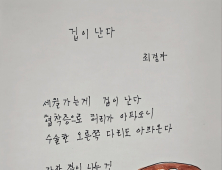 겁이 난다
최경자
세월 가는게 겁이 난다
협착증으로 허리가 아파오니
수술한 오른쪽 다리도 아파온다
가장 겁이 나는 것